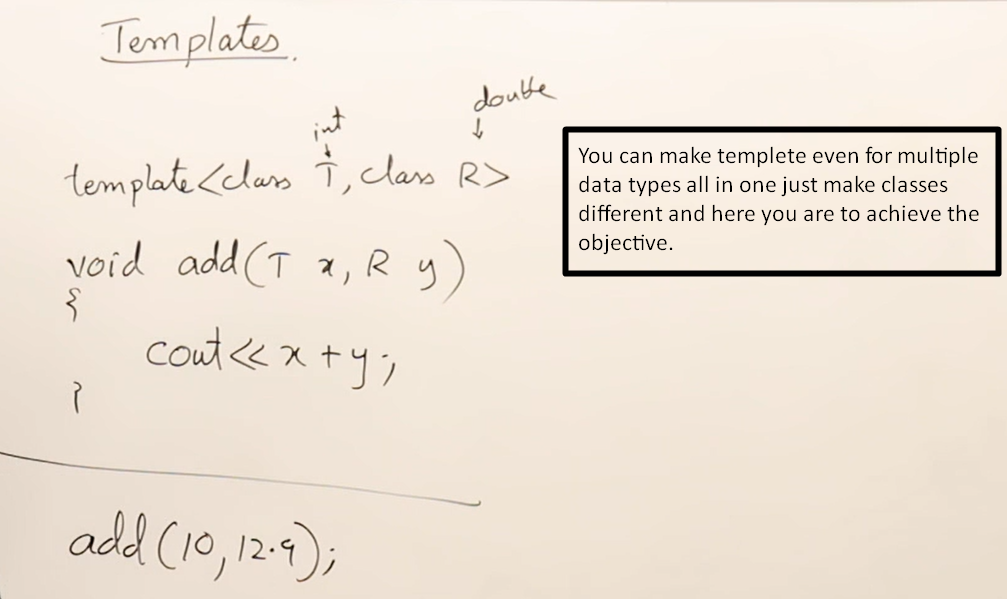 Templates.
double
int
↓
↓
template<class T, class R>
void add(T x, R y)
{
cout<<x+y;
}
add(10,12.9);
You can make templete even for multiple
data types all in one just make classes
different and here you are to achieve the
objective.